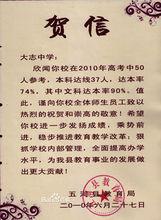 贺信
大志中学：
欣闻你校在2010年高考中50
人参考，本科达线37人，达本率
74%，其中文科达本率90%。值
此，谨向你校全体师生员工致以
热烈的祝贺和崇高的敬意！希望
你校进一步发扬成绩，乘势前
进，稳步推进教育教学改革；狠
抓学校内部管理，全面提高办学
水平，为我县教育事业的发展做
出更大贡献！
五河县教育局
二0一0年六月二十七日